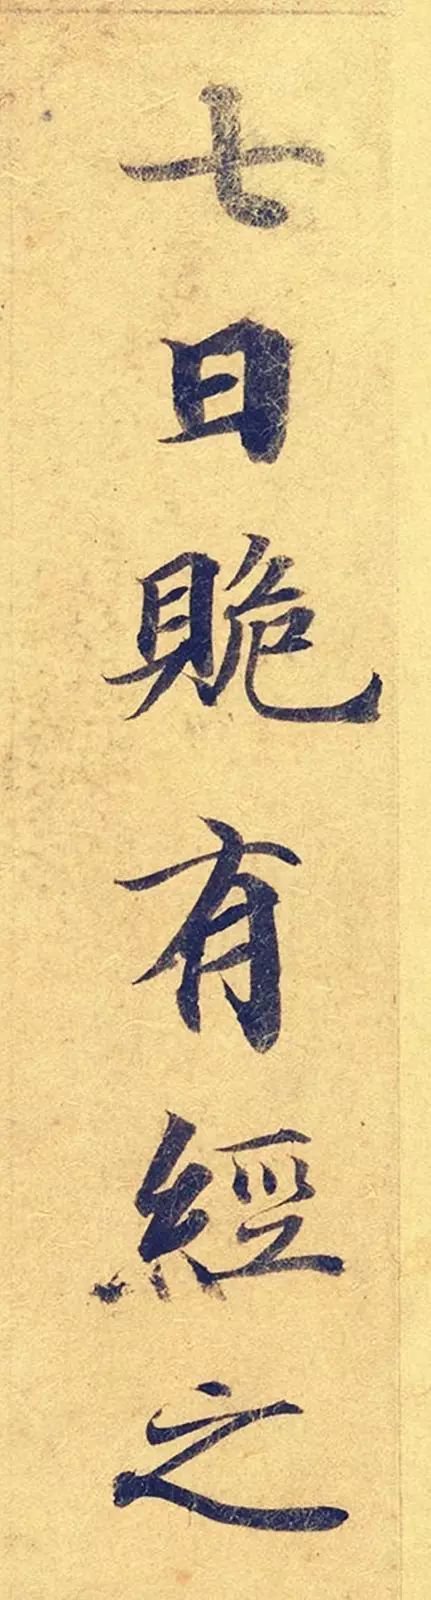 七日䞈有經之